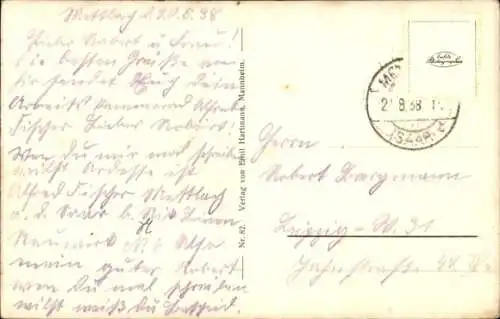 Mettlach d. 20.8.38
Lieber Robert u Frau!
die besten Grüße von
hir sendet Euch dein
Arbeits kammerad Alfred
Fischer Lieber Robert!
Wen du mir mal schreiben
wilst Adresse ist
Alfred Fischer Mettlach
a. d. Saar b.
Also
mein guter Robert
wen Du mal schreiben
wilst weiß Du Bescheid.
Verlag von Emil Hartmann, Mannheim.
Nr. 82.
Echte Photographie
21.8.38
(SAAR)
Herrn
Robert Bargmann
Leipzig - W. 31
Jahnstraße 48